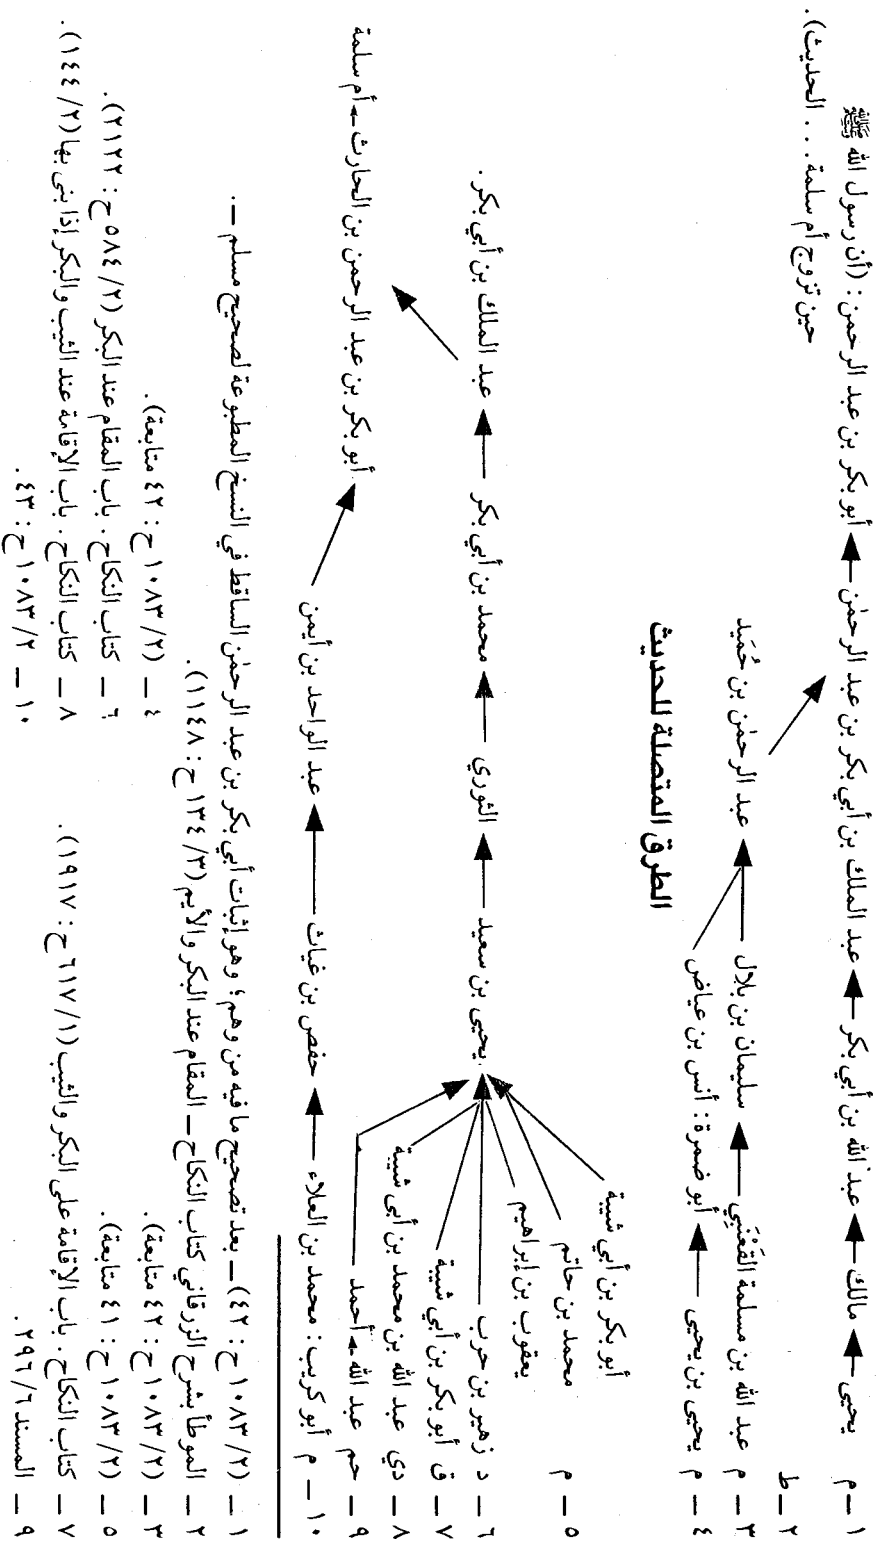 ١ – م يحيى ← مالك ← عبد الله بن أبي بكر ← عبد الملك بن أبي بكر بن عبد الرحمٰن ← أبو بكر بن عبد الرحمن: (أن رسول الله ﷺ
حين تزوج أم سلمة . . . الحديث).
٢ – ط
٣ – م عبد الله بن مسلمة القَعْنَبِي ← سليمان بن بلال ← عبد الرحمٰن بن حُمَيد
٤ – م يحيى بن يحيى ← أبو ضمرة: أنس بن عياض
الطرق المتصلة للحديث
٥ – م
أبو بكر بن أبي شيبة
محمد بن حاتم
يعقوب بن إبراهيم
٦ – د زهير بن حرب ← يحيى بن سعيد ← الثوري ← محمد بن أبي بكر ← عبد الملك بن أبي بكر.
٧ – ق أبو بكر بن أبي شيبة
٨ – دي عبد الله بن محمد بن أبي شيبة
٩ – حم عبد الله ← أحمد
أبو بكر بن عبد الرحمن بن الحارث ← أم سلمة
١٠ – م أبو كريب: محمد بن العلاء ← حفص بن غياث ← عبد الواحد بن أيمن
١ – (٢/ ١٠٨٣ ح: ٤٢) – بعد تصحيح ما فيه من وهم؛ وهو إثبات أبي بكر بن عبد الرحمٰن الساقط في النسخ المطبوعة لصحيح مسلم –.
٢ – الموطأ بشرح الزرقاني كتاب النكاح – المقام عند البكر والأيم (٣/ ١٣٤ ح: ١١٤٨).
٣ – (٢/ ١٠٨٣ ح: ٤٢ متابعة).
٤ – (٢/ ١٠٨٣ ح: ٤٢ متابعة).
٥ – (٢/ ١٠٨٣ ح: ٤١ متابعة).
٦ – كتاب النكاح. باب المقام عند البكر (٢/ ٥٨٤ ح: ٢١٢٢).
٧ – كتاب النكاح. باب الإقامة على البكر والثيب (١/ ٦١٧ ح: ١٩١٧).
٨ – كتاب النكاح. باب الإقامة عند الثيب والبكر إذا بنى بها (٢/ ١٤٤).
٩ – المسند ٦/ ٢٩٦.
١٠ – ٢/ ١٠٨٣ ح: ٤٣.